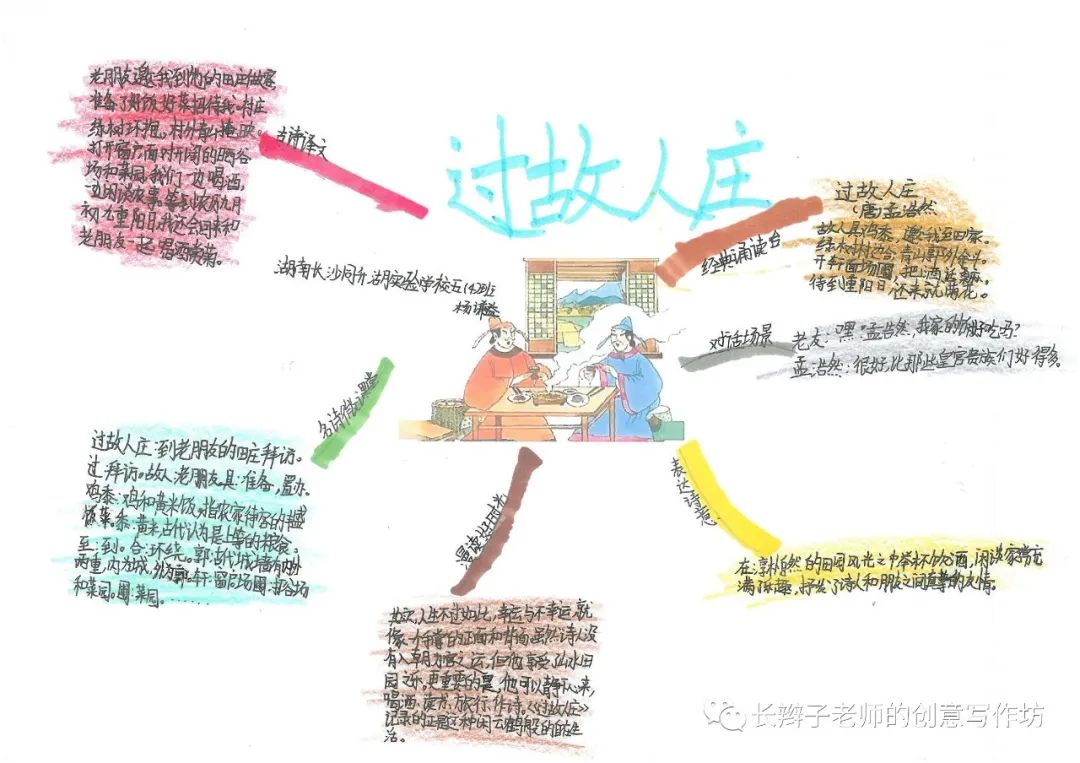 过故人庄
湖南长沙同升湖实验学校五(4)班
古诗译文
老朋友邀我到他的田庄做客,
准备了好饭好菜招待我。村庄
绿树环抱,村外青山掩映。
打开窗户面对开阔的晒谷
场和菜园,我们一边喝酒,
一边闲谈农事。等到农历九月
初九重阳日,我还会回来和
老朋友一起喝酒赏菊。
经典诵读台
过故人庄
(唐)孟浩然
故人具鸡黍,邀我至田家。
绿树村边合,青山郭外斜。
开轩面场圃,把酒话桑麻。
待到重阳日,还来就菊花。
对话场景
老友:嘿,孟浩然,我家的饭好吃吗?
孟浩然:很好,比那些皇宫贵族们好得多
表达诗意
在 的田园风光之中举杯饮酒,闲谈家常,充
满了乐趣,抒发了诗人和朋友之间真挚的友情。
漫读好时光
其实,人生不过如此,幸运与不幸运,就
像一个手掌的正面和背面。虽然诗人没
有入朝为官之运,但他享受了山水田
园之乐。更重要的是,他可以静下心来,
喝酒、读书、旅行、作诗。《过故人庄》
记录的正是这种闲云野鹤般的自在生
活。
名诗微课堂
过故人庄:到老朋友的田庄拜访。
过:拜访。故人:老朋友。具:准备,置办。
鸡黍:鸡和黄米饭,指农家待客的丰盛
饭菜。黍:黄米,古代认为是上等的粮食。
至:到。合:环绕。郭:古代城墙有内外
两重,内为城,外为郭。轩:窗户。场圃:打谷场
和菜园。圃:菜园。……
长辫子老师的创意写作坊